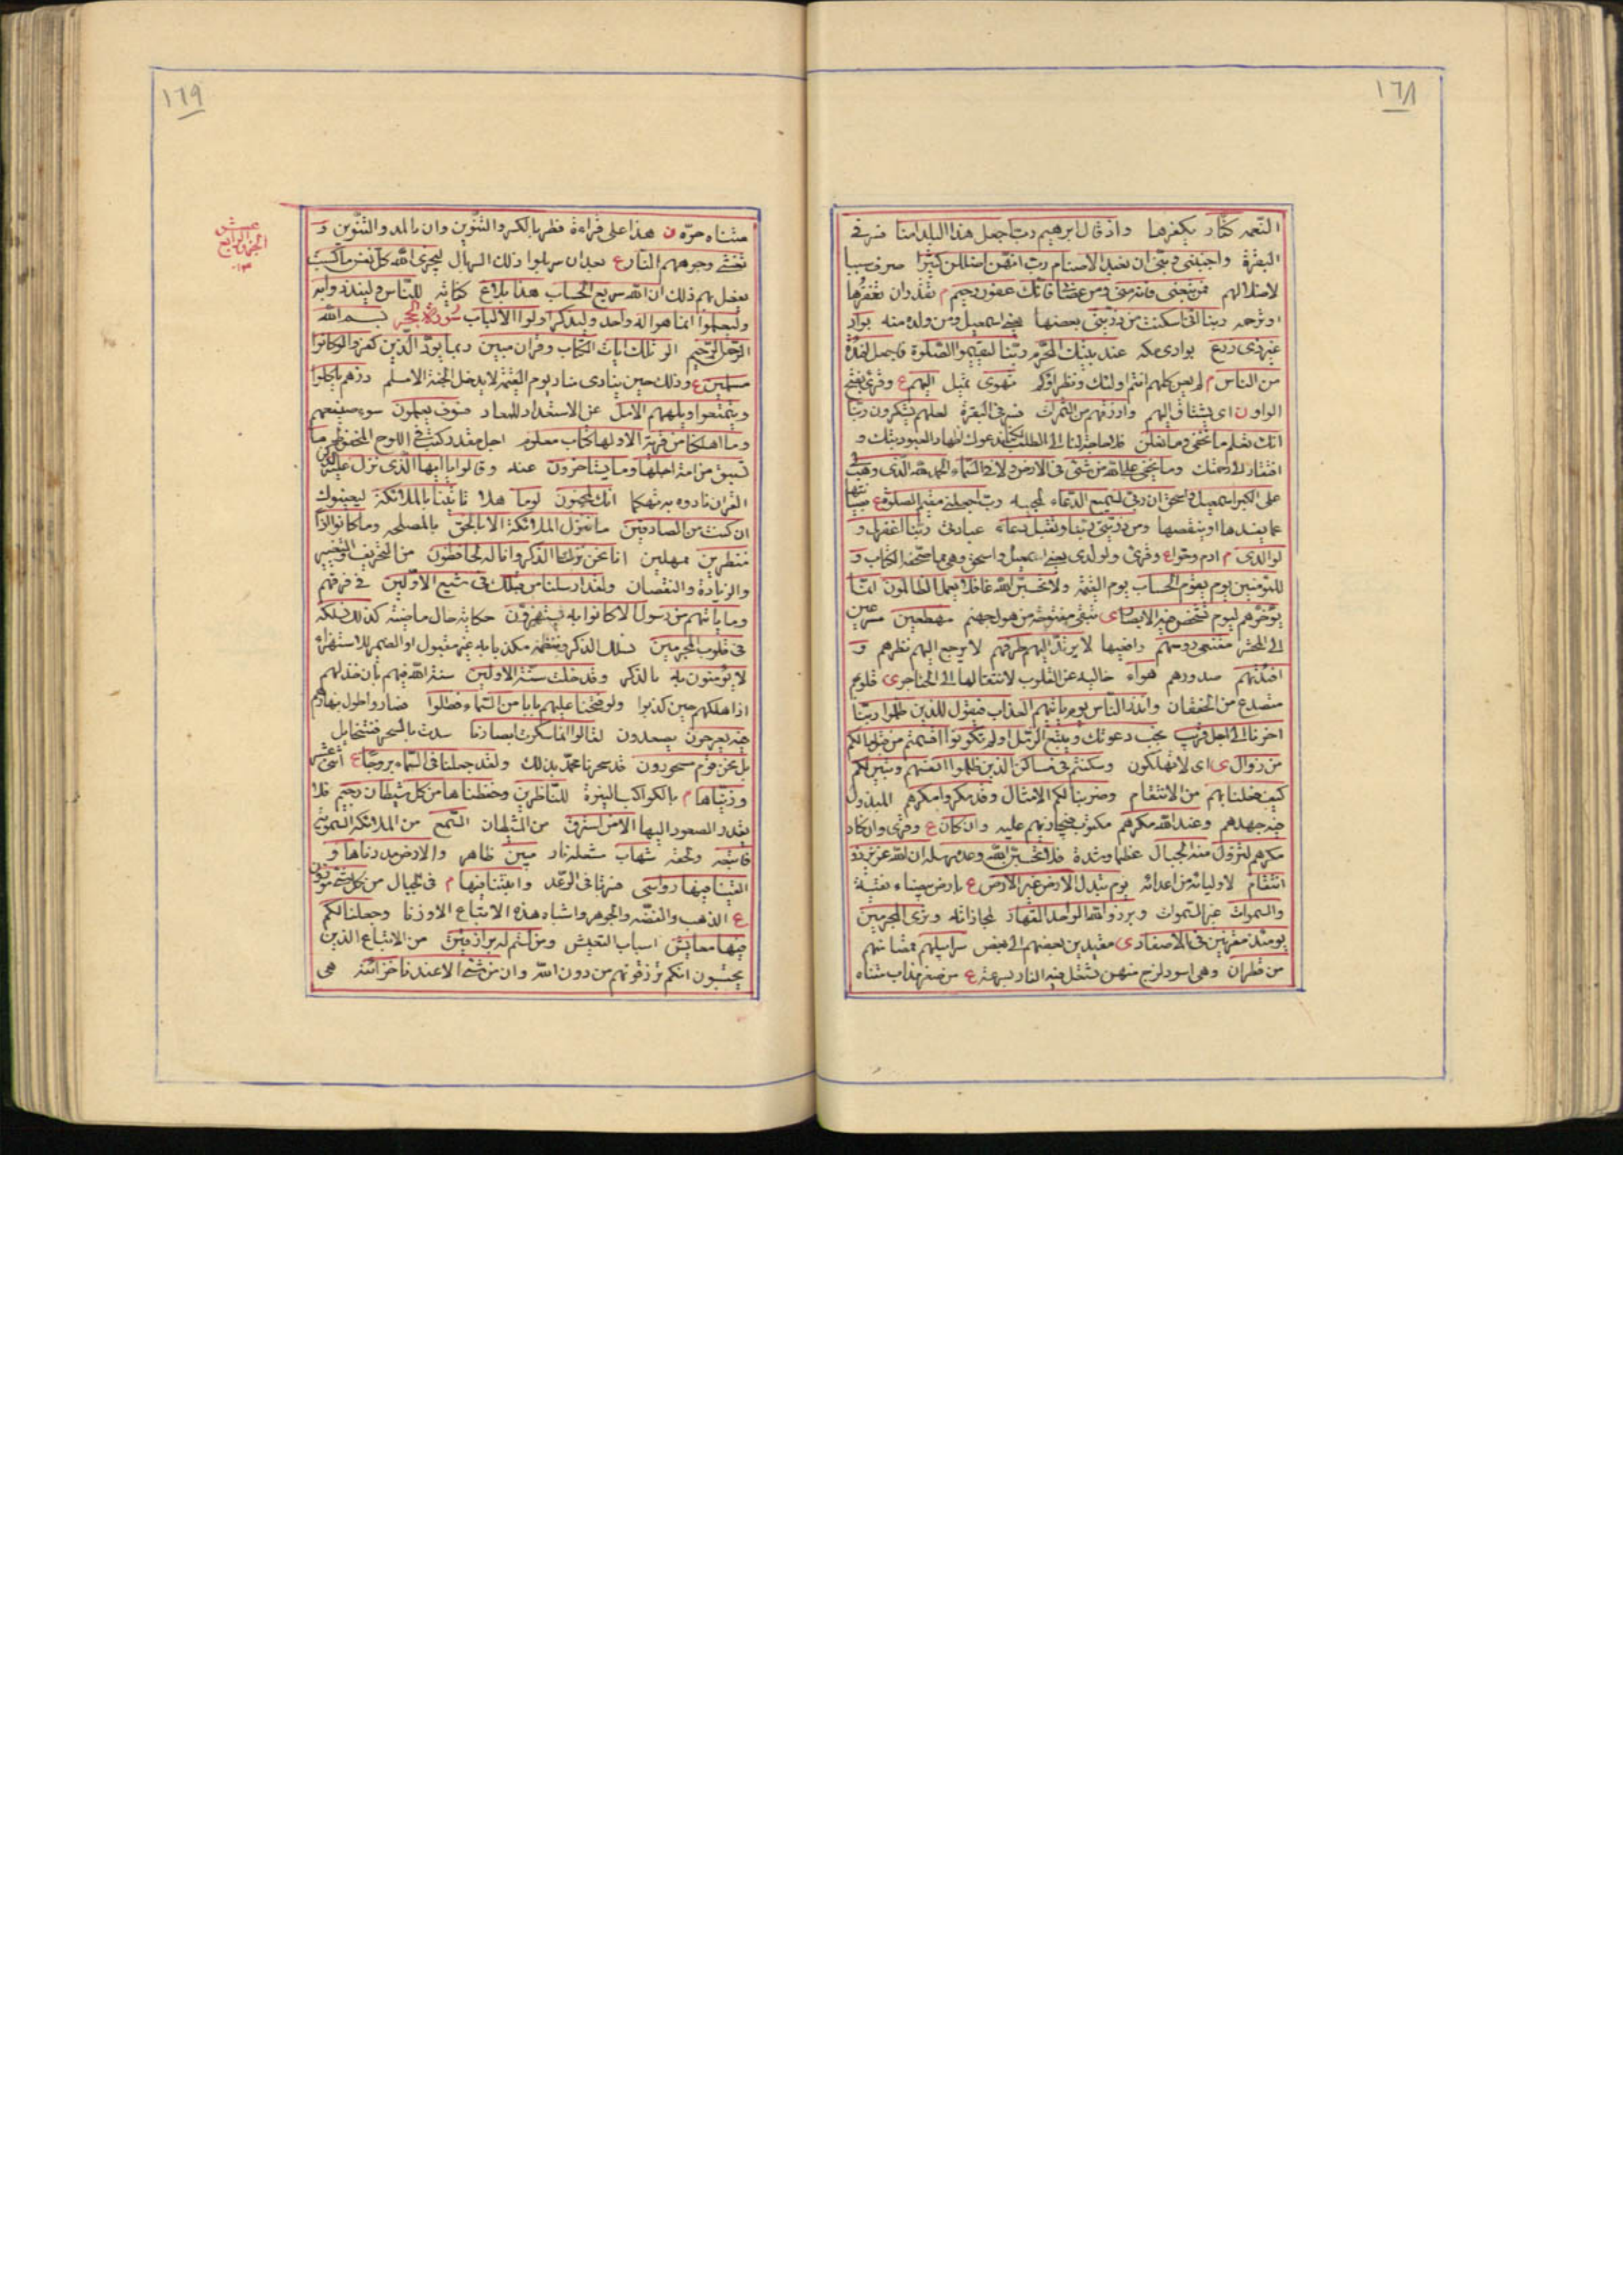 ١٦٨
النعمه كفار بكفرها واذ قال ابرهيم رب اجعل هذا البلد امنا فسر فى
البقرة واجنبنى وبنى ان نعبد الاصنام رب انهن اضللن كثيرا صرن سببا
لاضلالهم فمن تبعنى فانه منى ومن عصانى فانك غفور رحيم م تقدر ان تغفرها
وترحمه ربنا انى اسكنت من ذريتى بعضها يعنى اسمعيل ومن ولد منه بواد
غير ذى زرع بوادى مكه عند بيتك المحرم ربنا ليقيموا الصلوة فاجعل افئدة
من الناس م لم يعن كلهم انتم اولئك ونظراؤكم تهوى تميل اليهم ع وقرئ بفتح
الواو ن اى يشتاق اليهم وارزقهم من الثمرات فسر فى البقرة لعلهم يشكرون ربنا
انك تعلم ما نخفى وما نعلن فلا حاجة لنا الى الطلب لكنا ندعوك اظهارا لعبوديتك و
افتقارا الى رحمتك وما يخفى على الله من شئ فى الارض ولا فى السماء الحمد لله الذى وهب لى
على الكبر اسمعيل واسحق ان ربى لسميع الدعاء لمجيبه رب اجعلنى مقيم الصلوة ع
عما يفسدها او ينقصها ومن ذريتى ربنا وتقبل دعاء عبادتى ربنا اغفر لى و
لوالدى م ادم وحوا ع وقرئ ولولدى يعنى اسمعيل واسحق وهى مما صحفه الكتاب و
للمؤمنين يوم يقوم الحساب يوم القيمة ولا تحسبن الله غافلا عما يعمل الظالمون انما
يؤخرهم ليوم تشخص فيه الابصار ى تبقى مفتوحة من هول جهنم مهطعين مسرعين
الى المحشر مقنعى رؤسهم رافعيها لا يرتد اليهم طرفهم لا يرجع اليهم نظرهم و
افئدتهم صدورهم هواء خاليه عن القلوب لانتقالها الى الحناجر ى قلوبهم
متصدع من الخفقان وانذر الناس يوم ياتيهم العذاب فيقول الذين ظلموا ربنا
اخرنا الى اجل قريب نجب دعوتك ونتبع الرسل اولم تكونوا اقسمتم من قبل ما لكم
من زوال ى اى لا تهلكون وسكنتم فى مساكن الذين ظلموا انفسهم وتبين لكم
كيف فعلنا بهم من الانتقام وضربنا لكم الامثال وقد مكروا مكرهم المبذول
فيه جهدهم وعند الله مكرهم مكتوب فيجازيهم عليه وان كان ع وقرئ وان كاد
مكرهم لتزول منه الجبال عظما وشدة فلا تحسبن الله مخلف وعده رسله ان الله عزيز ذو
انتقام لاوليائه من اعدائه يوم تبدل الارض غير الارض ع بارض بيضاء نقية
والسموات غير السموات وبرزوا لله الواحد القهار لمجازاته وترى المجرمين
يومئذ مقرنين فى الاصفاد ى مقيدين بعضهم الى بعض سرابيلهم قمصانهم
من قطران وهى اسود لزج منتن تشتعل فيه النار بسرعة ع من صفر مذاب متناه
١٦٩
متناه حره ن هذا على قراءة قطر بالكسر والتنوين وان بالمد والتنوين و
تغشى وجوههم النار ع بعد ان سربلوا ذلك السربال ليجزى الله كل نفس ما كسبت
يفعل بهم ذلك ان الله سريع الحساب هذا بلاغ كفاية للناس ولينذروا به
وليعلموا انما هو اله واحد وليذكر اولوا الالباب سورة الحجر بسم الله
الرحمن الرحيم الر تلك ايات الكتاب وقران مبين ربما يود الذين كفروا لو كانوا
مسلمين ع وذلك حين ينادى مناد يوم القيمة لا يدخل الجنة الا مسلم ذرهم ياكلوا
ويتمتعوا ويلههم الامل عن الاستعداد للمعاد فسوف يعلمون سوء صنيعهم
وما اهلكنا من قرية الا ولها كتاب معلوم اجل مقدر كتب فى اللوح المحفوظ ما
تسبق من امة اجلها وما يستاخرون عنه وقالوا يا ايها الذى نزل عليه الذكر
القران نادوه به تهكما انك لمجنون لو ما هلا تاتينا بالملائكة ليعينوك
ان كنت من الصادقين ما ننزل الملائكة الا بالحق بالمصلحه وما كانوا اذا
منظرين ممهلين انا نحن نزلنا الذكر وانا له لحافظون من التحريف والتغيير
والزيادة والنقصان ولقد ارسلنا من قبلك فى شيع الاولين فى فرقهم
وما ياتيهم من رسول الا كانوا به يستهزؤن حكاية حال ماضيه كذلك نسلكه
فى قلوب المجرمين نسلك الذكر وننظمه مكذبا به غير مقبول او الضمير للاستهزاء
لا يؤمنون به بالذكر وقد خلت سنة الاولين سنة الله فيهم بان خذلهم
اذا اهلكهم حين كذبوا ولو فتحنا عليهم بابا من السماء فظلوا فصاروا طول نهارهم
فيه يعرجون يصعدون لقالوا انما سكرت ابصارنا سدت بالسحر فتتخايل
بل نحن قوم مسحورون قد سحرنا محمد بذلك ولقد جعلنا فى السماء بروجا ع اثنى عشر
وزيناها م بالكواكب النيرة للناظرين وحفظناها من كل شيطان رجيم فلا
يقدر الصعود اليها الا من استرق من الشيطان السمع من الملائكة السموية
فاتبعه ولحقه شهاب شعلة نار مبين ظاهر والارض مددناها و
القينا فيها رواسى فسرتا فى الرعد وانبتنا فيها م فى الجبال من كل شئ موزون
ع الذهب والفضه والجوهر واشباه هذه لا تباع الا وزنا وجعلنا لكم
فيها معايش اسباب التعيش ومن لستم له برازقين من الاتباع الذين
يحسبون انكم ترزقونهم من دون الله وان من شئ الا عندنا خزائنه هى
الجزو الرابع
عشر